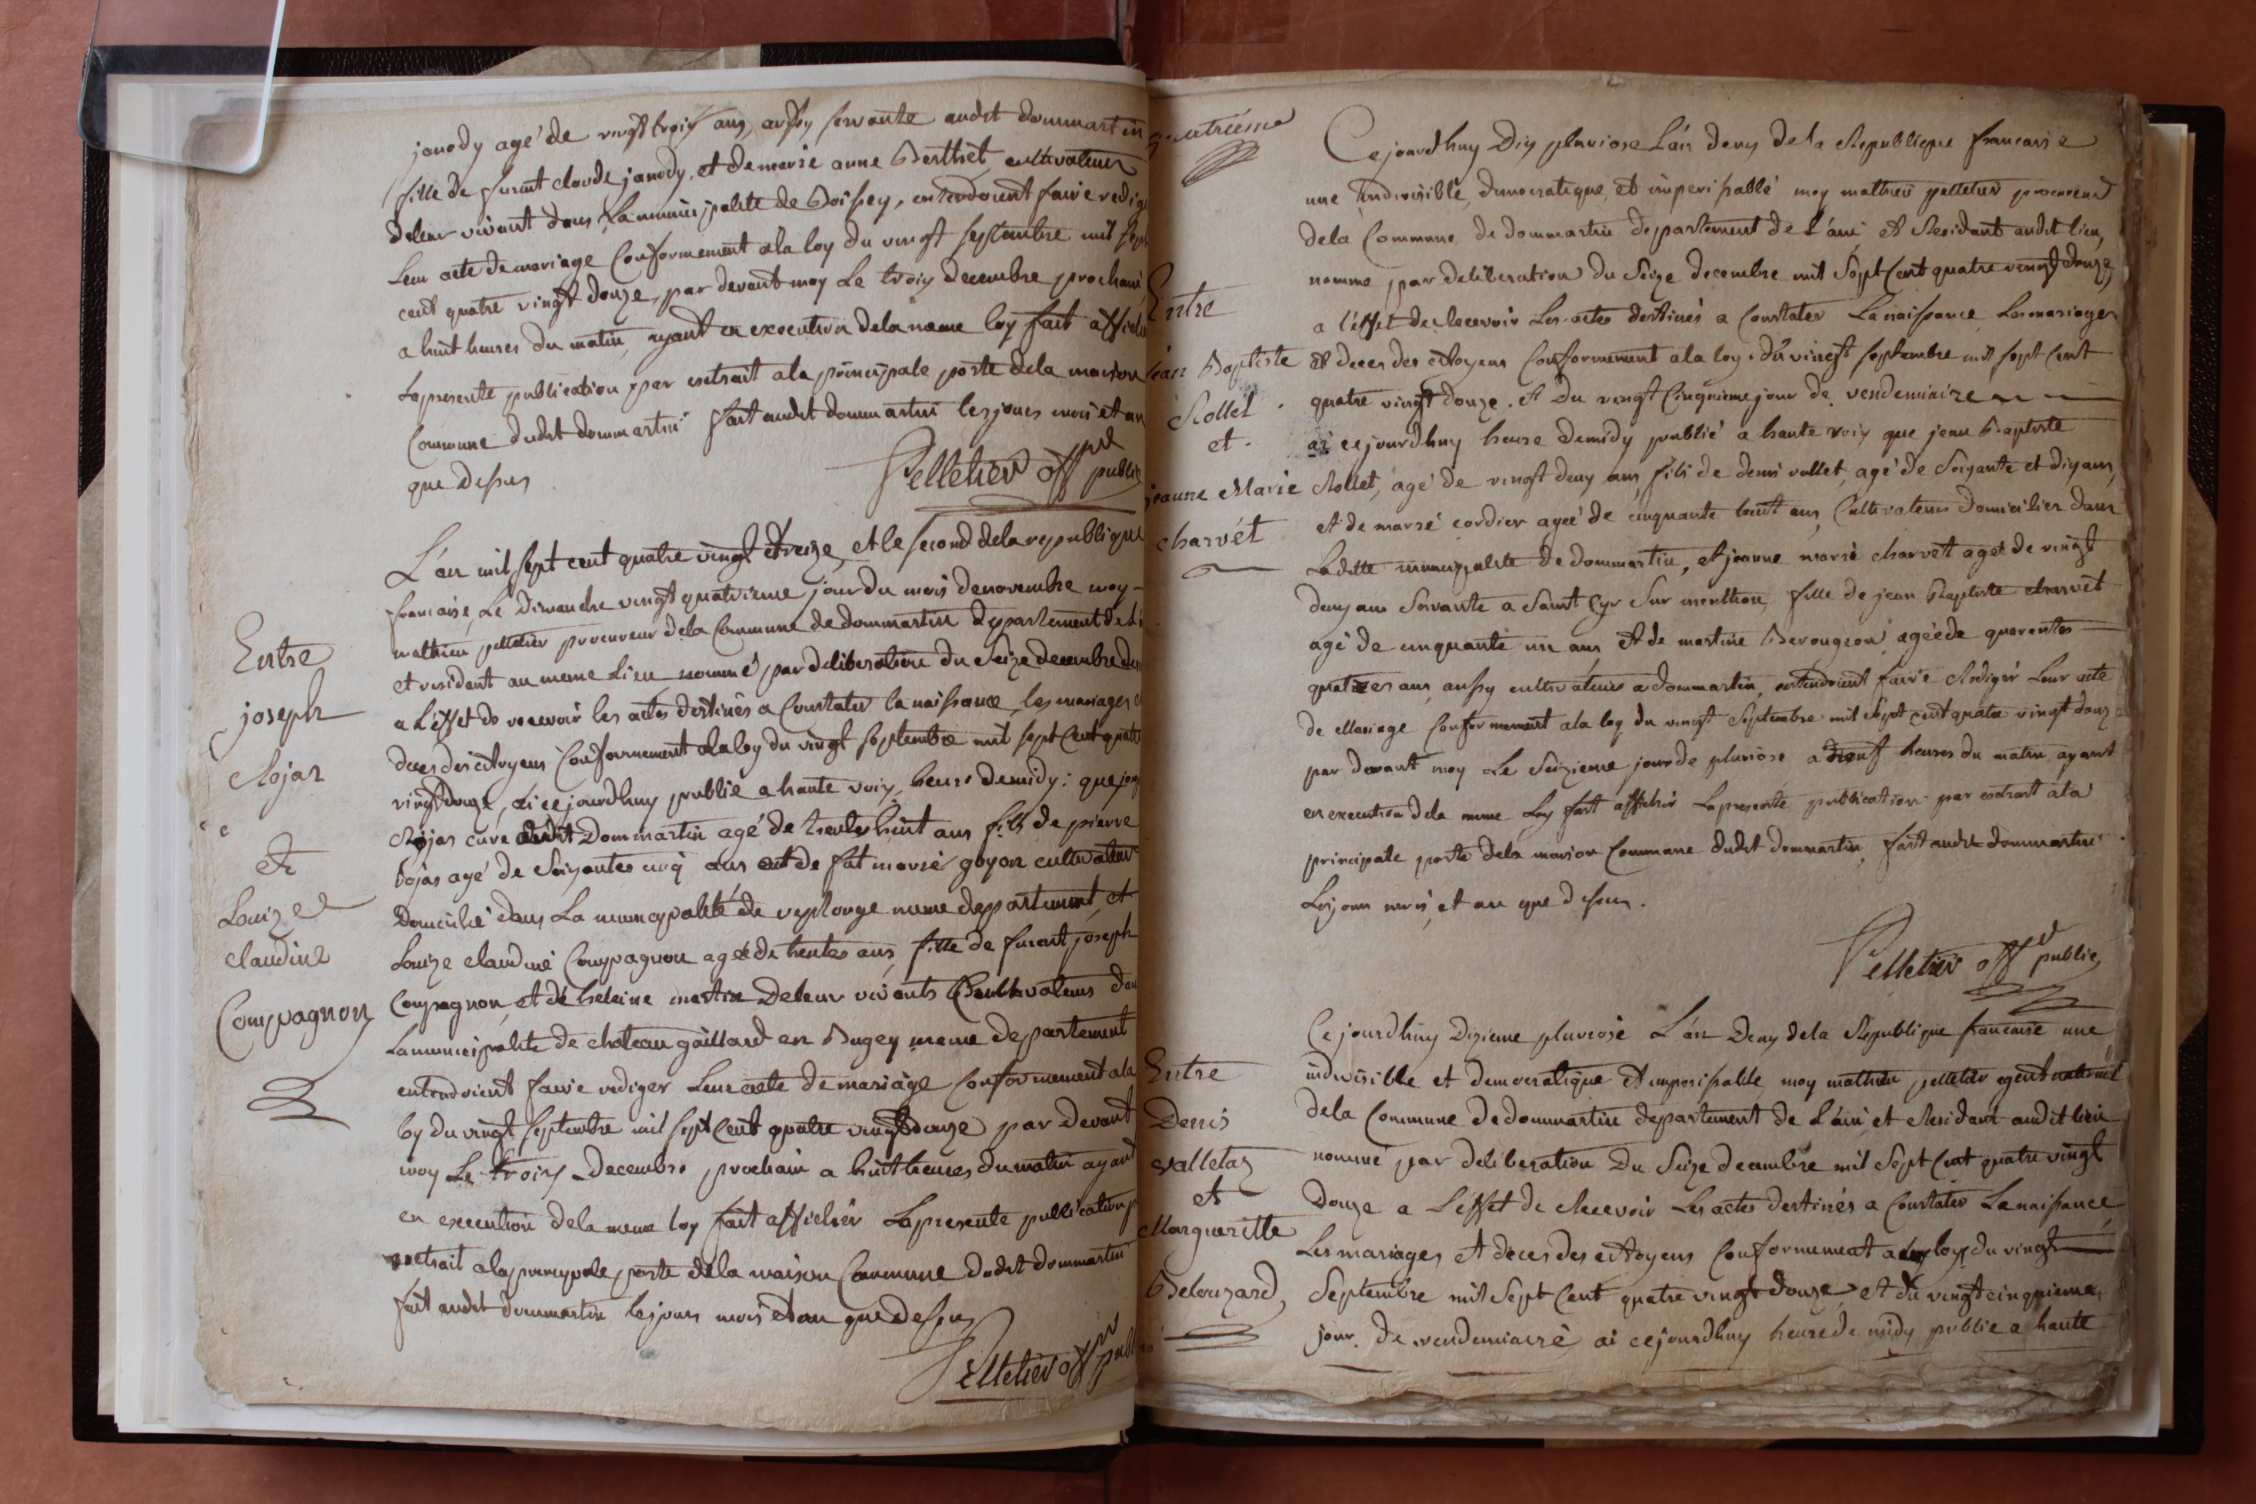 janody agé de vingt trois ans, aussy servante audit dommartin
fille de furent claude janody, et de marie anne Berthet cultivateurs
deleur vivant dans la municipalité de Boissey, entendoient faire redig
leur acte de mariage Conformement ala loy du vingt septembre mil sept
cent quatre vingt douze, par devant moy Le trois decembre prochain
a huit heures du matin, ayant en execution dela meme loy fait affiche
la presente publication par extrait ala principale porte dela maison
Commune dudit dommartin fait audit dommartin les jours mois et an
que dessus
Pelletier off public
Entre
joseph
Rojar
et
Louize
claudine
Compagnon
L'an mil sept cent quatre vingt et treize, et le second dela republique
francaise, Le Dimanche vingt quatrieme jour du mois de novembre moy
mathieu pelletier procureur dela Commune de dommartin departement de L'
et residant au meme Lieu nommé par deliberation du Seize decembre
a L'effet de recevoir les actes destinés a Constater la naissance les mariages
deces des citoyens Conformement ala loy du vingt septembre mil sept Cent quatre
vingt douze, ai cejourdhuy publié a haute voix, heure de midy: que
Rojas curé dudit Dommartin agé de trente huit ans fils de pierre
Rojas agé de Soixantes cinq ans et de fut marie goyon cultivateur
Domicilié dans La municypalité de replonge meme departement, et
Louize claudine Compagnon agée de trentes ans, fille de furent joseph
Compagnon, et de heleine martin Deleur vivants Cultivateurs dans
La municipalité de chateau gaillard en Bugey meme departement
entendoient faire rediger Leur acte de mariage Conformement ala
loy du vingt septembre mil sept Cent quatre vingt douze par Devant
moy Le trois Decembre prochain a huit heures du matin ayant
en execution dela meme loy fait afficher La presente publication p
extrait ala princypale porte dela maison Commune dudit dommartin
fait audit dommartin les jours mois et an que dessus
Pelletier off publ
quatriéme
Entre
jean Baptiste
Rollet
et
jeanne Marie
charvét
Cejourdhuy Dix pluviose L'an deux dela Republique francaise
une indivisible, democratique, et imperissable moy mathieu pelletier procureur
dela Commune de dommartin departement de L'ain et Residant audit lieu,
nomme par deliberation du Seize decembre mil Sept Cent quatre vingt douze,
a l'effet de Recevoir Les actes destinés a Constater La naissance Les mariages
et deces des citoyens Conformement ala loy du vingt septembre mil sept Cent
quatre vingt douze. et Du vingt Cinquieme jour de vendemiaire
ai cejourdhuy heure demidy publié a haute voix que jean Baptiste
Rollet, agé de vingt deux ans, fils de denis rollet, agé de Soixante et dix ans,
et de marie cordier agée de cinquante huit ans, Cultivateurs Domicilier dans
Laditte municypalité de dommartin, et jeanne marie charvét agée de vingt
deux ans Servante a Saint Cyr Sur menthon, fille de jean Baptiste charvét
agé de cinquante un ans et de martine Berougeon, agée de quarentes
quatres ans, aussy cultivateurs a dommartin, entendoient faire Rediger Leur acte
de Mariage Conformement ala loy du vingt Septembre mil Sept Cent quatre vingt douze
par devant moy Le Seizieme jour de pluviose a neuf heures du matin ayant
en execution dela meme Loy fait afficher La presente publication par extrait ala
principale porte dela maison Commune dudit dommartin, fait audit dommartin
Les jours mois, et an que dessus.
Pelletier off public
Entre
Denis
valletaz
et
Margueritte
Belouzard
Cejourdhuy Dixieme pluviose L'an Deux dela Republique francaise une
indivisible et democratique et imperissable, moy mathieu pelletier agent national
dela Commune de dommartin departement de L'ain, et Residant audit lieu
nommé par deliberation Du Seize decembre mil Sept Cent quatre vingt
Douze a L'effet de Recevoir Les actes destinés a Constater La naissance
Les mariages, et deces des citoyens Conformement aux loys du vingt
Septembre mil Sept Cent quatre vingt douze, et du vingt cinquieme
jour de vendemiaire ai cejourdhuy heure de midy publié a haute